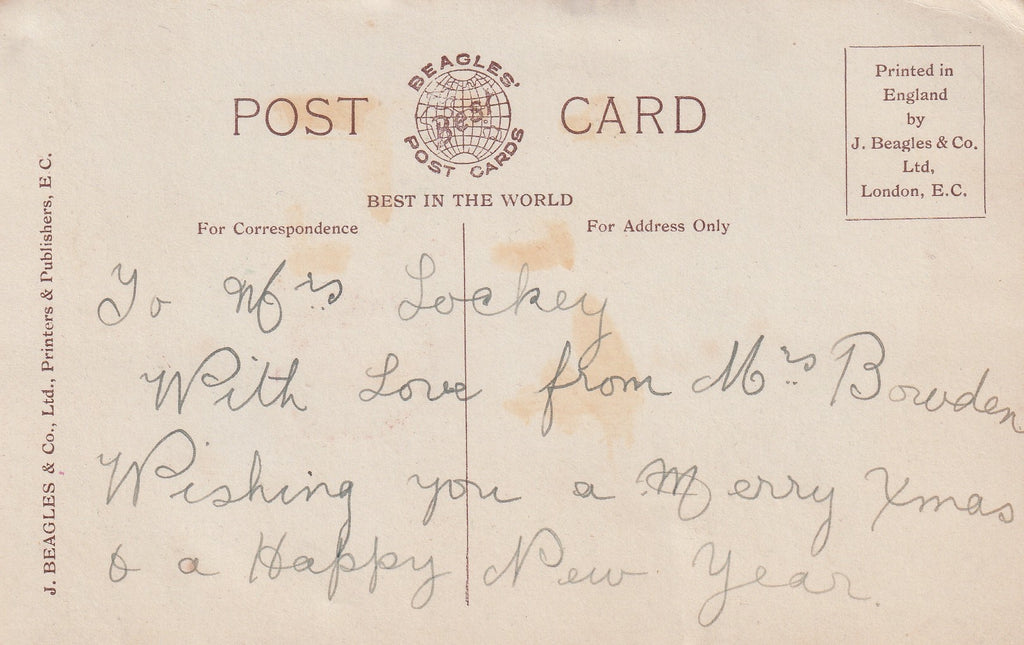 POST CARD
BEAGLES'
Best
POST CARDS
BEST IN THE WORLD
Printed in
England
by
J. Beagles & Co.
Ltd,
London, E.C.
For Correspondence
For Address Only
J. BEAGLES & Co., Ltd., Printers & Publishers, E.C.
To Mrs Lockey
With Love from Mrs Bowden
Wishing you a Merry Xmas
& a Happy New Year.